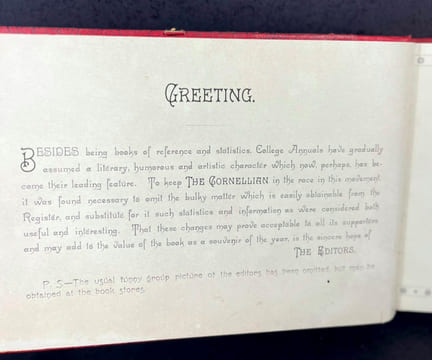 GREETING.
BESIDES being books of reference and statistics, College Annuals have gradually
assumed a literary, humorous and artistic character which now, perhaps, has be-
come their leading feature. To keep THE CORNELLIAN in the race in this movement
it was found necessary to omit the bulky matter which is easily obtainable from the
Register, and substitute for it such statistics and information as were considered both
useful and interesting. That these changes may prove acceptable to all its supporters
and may add to the value of the book as a souvenir of the year, is the sincere hope of
THE EDITORS.
P. S.—The usual funny group picture of the editors has been omitted, but may be
obtained at the book stores.